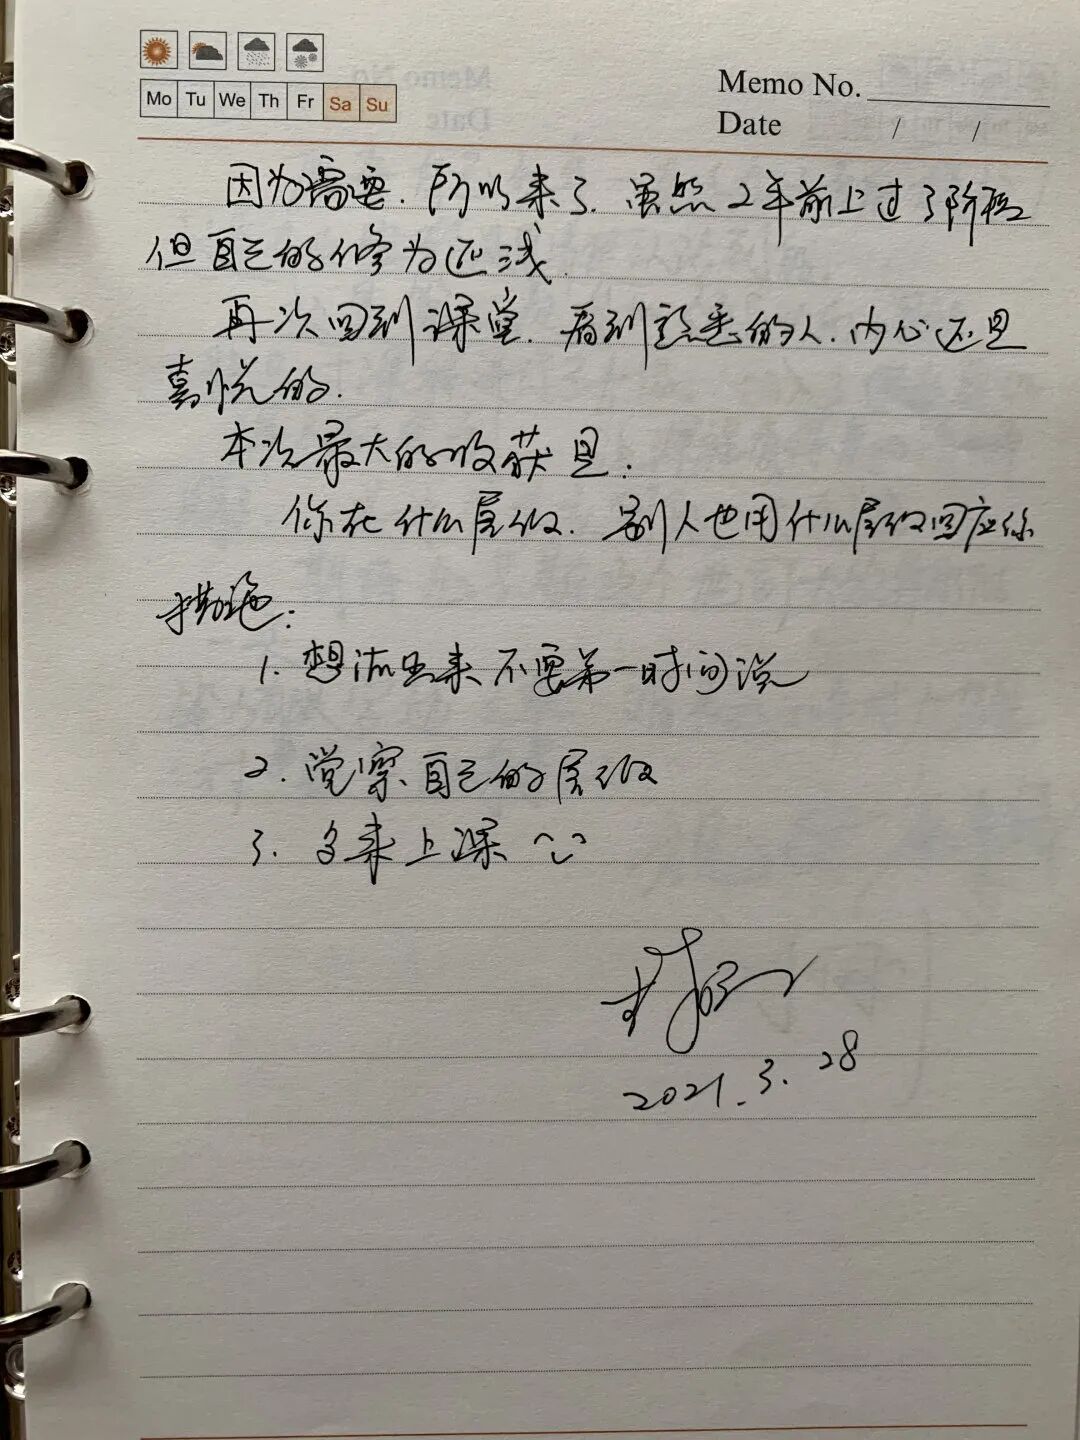 Mo Tu We Th Fr Sa Su
Memo No.
Date / /
因为需要.所以来了.虽然2年前上过了阶段
但自己的修为还浅.
再次回到课堂.看到熟悉的人.内心还是
喜悦的.
本次最大的收获是:
你在什么层级.别人也用什么层级回应你
措施:
1.想法出来不要第一时间说
2.觉察自己的层级
3.多来上课
2021.3.28